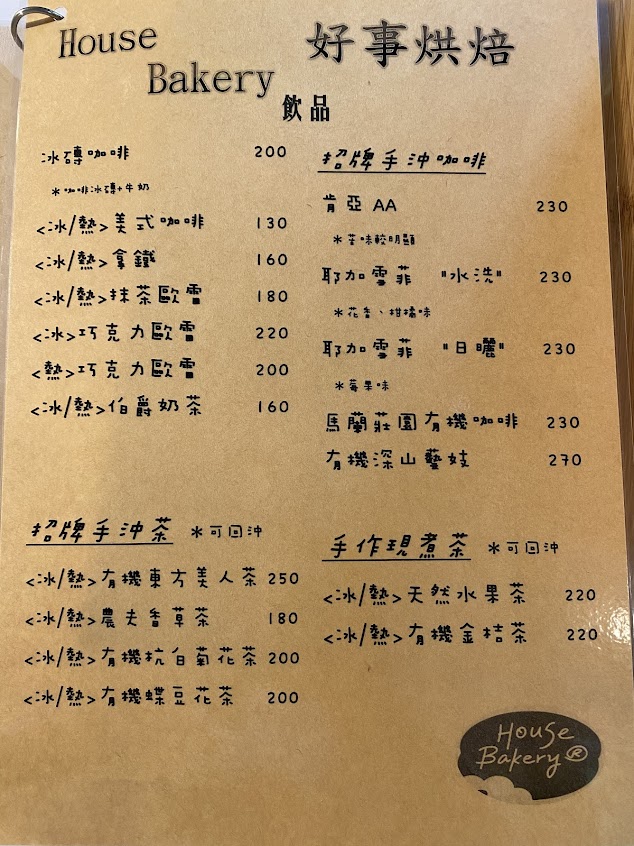 House
Bakery
好事烘焙
飲品
冰磚咖啡 200
*咖啡冰磚+牛奶
<冰/熱>美式咖啡 130
<冰/熱>拿鐵 160
<冰/熱>抹茶歐雪 180
<冰>巧克力歐雪 220
<熱>巧克力歐雪 200
<冰/熱>伯爵奶茶 160
招牌手沖咖啡
肯亞 AA 230
*苦味較明顯
耶加雪菲 "水洗" 230
*花香、柑橘味
耶加雪菲 "日曬" 230
*莓果味
馬蘭莊園有機咖啡 230
有機深山藝妓 270
招牌手沖茶 *可回沖
<冰/熱>有機東方美人茶 250
<冰/熱>農夫香草茶 180
<冰/熱>有機杭白菊花茶 200
<冰/熱>有機蝶豆花茶 200
手作現煮茶 *可回沖
<冰/熱>天然水果茶 220
<冰/熱>有機金桔茶 220
House
Bakery®